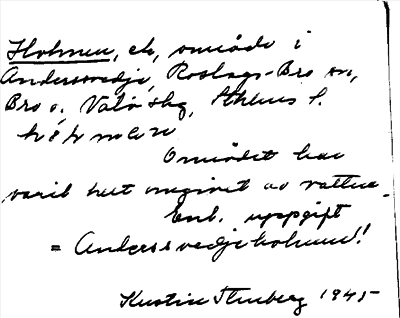 Holmen, ek, område i
Anderssvedja, Roslags-Bro sn,
Bro o. Vätö skg, Sthlms l.
Området har
varit helt omgivet av vatten.
Enl. uppgift
= Anderssvedjeholmen!
Kerstin Thunberg 1945